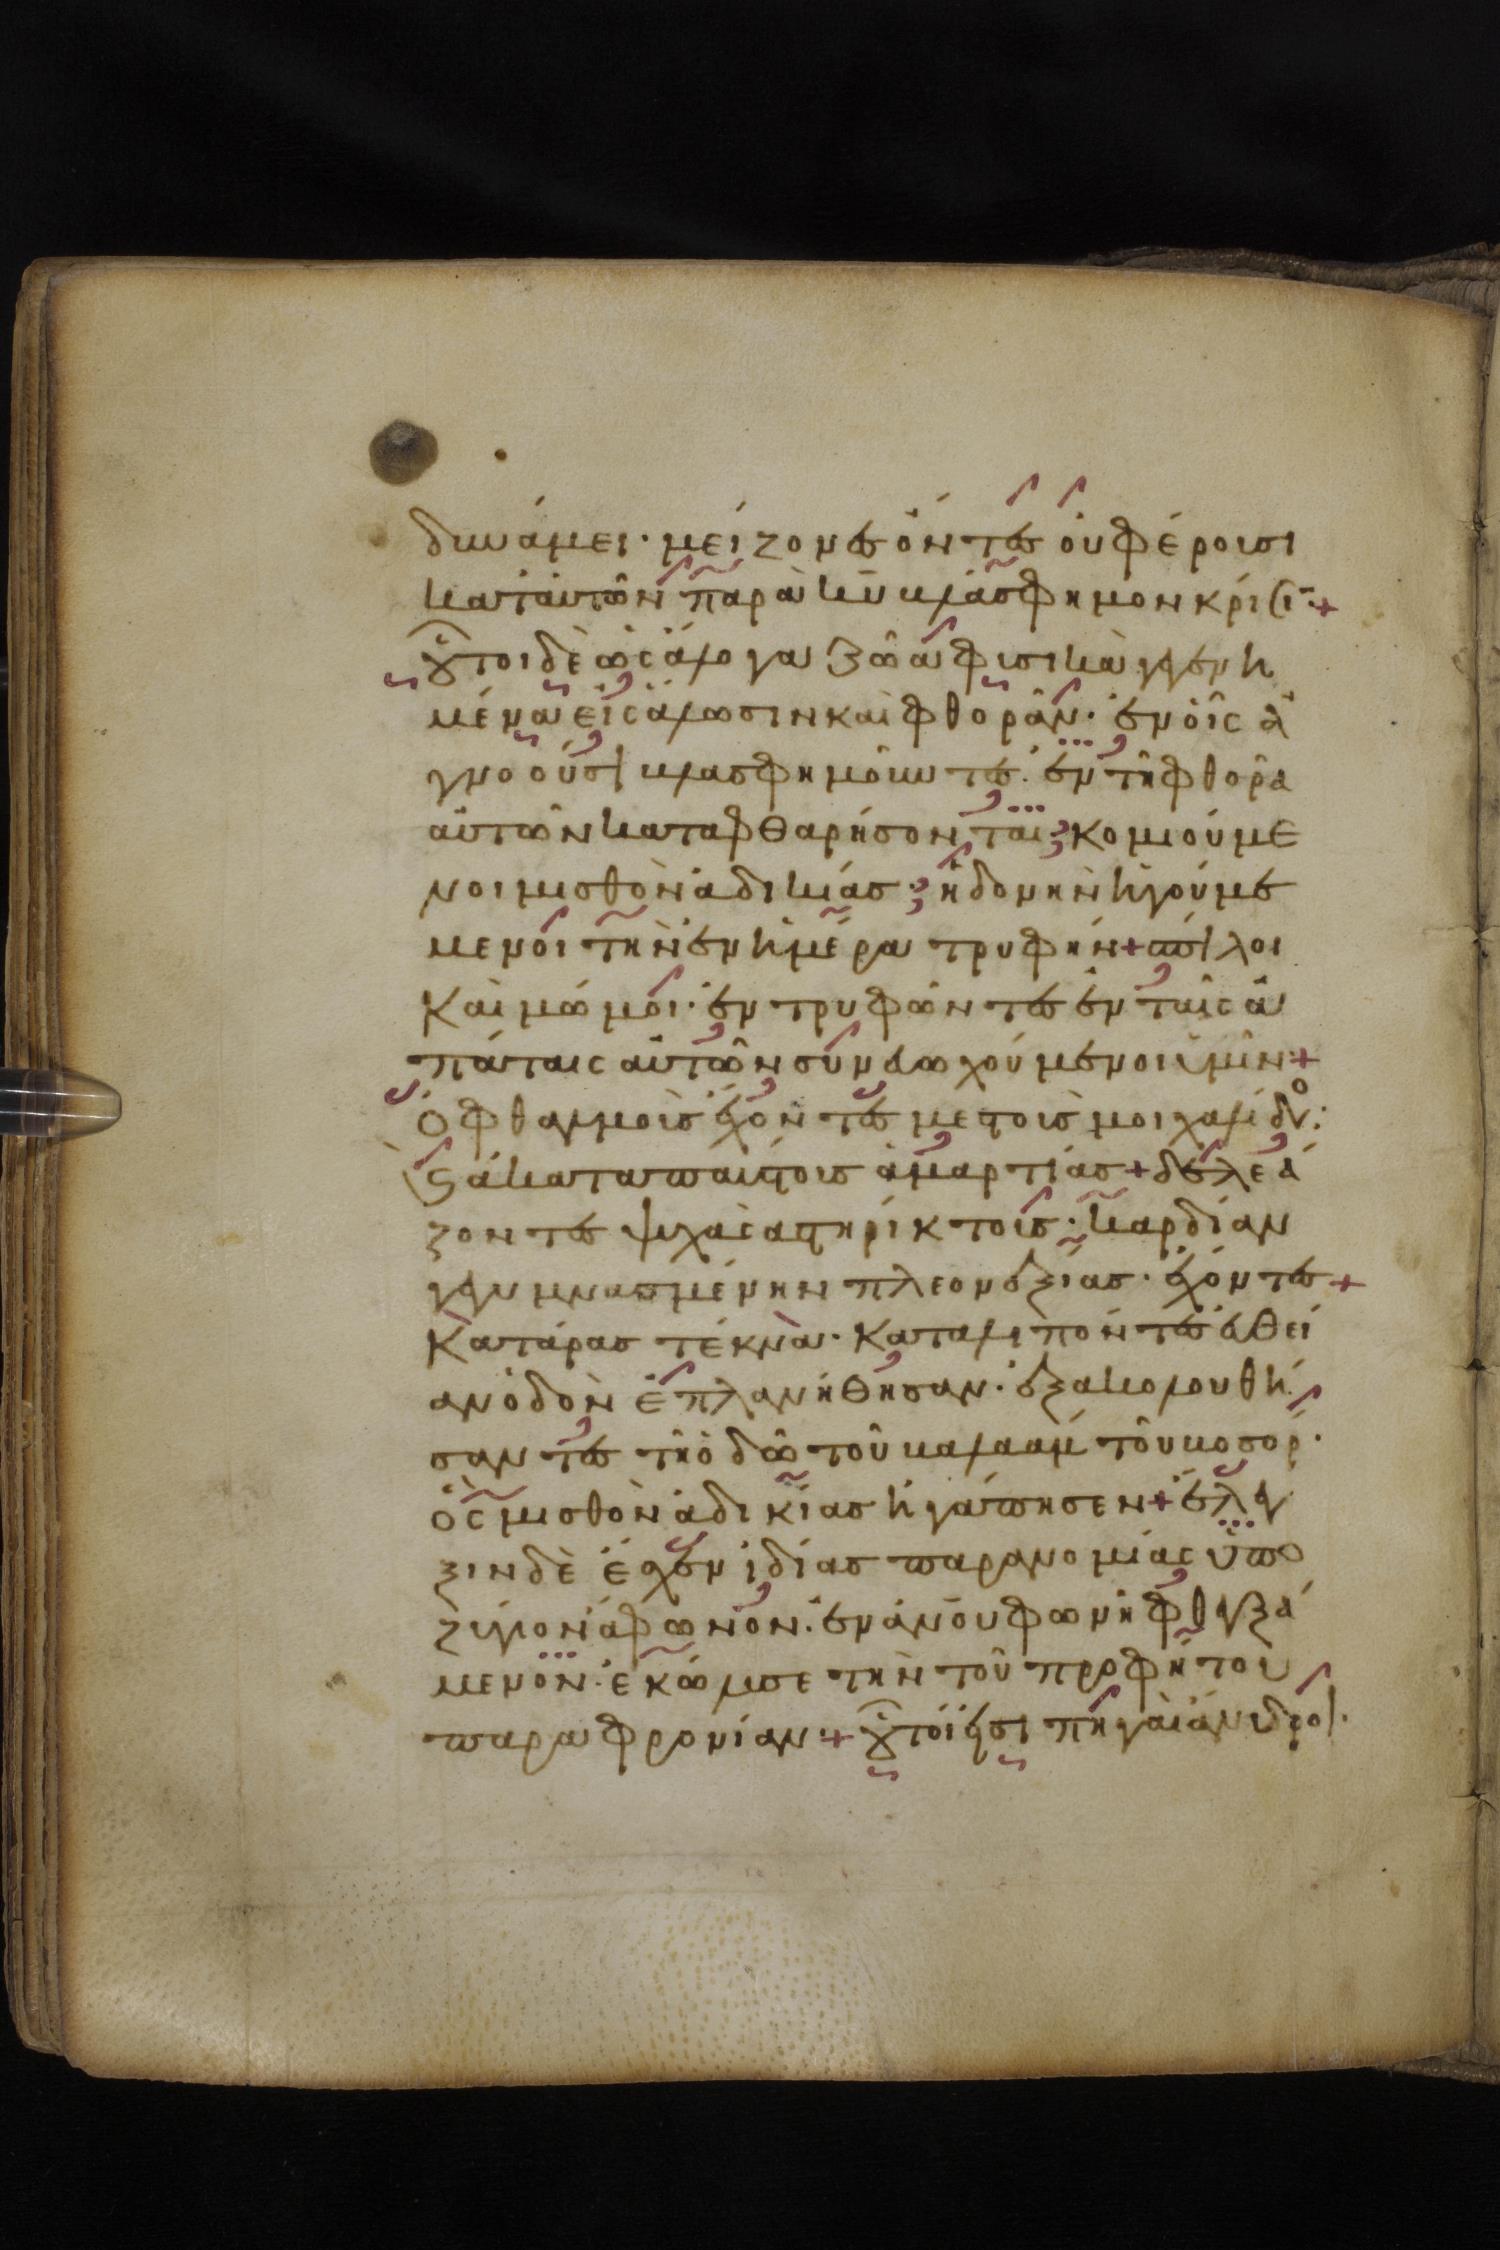 δυνάμει· μείζονες ὄντες οὐ φέρουσι
κατ αὐτῶν παρὰ κ̅υ̅ βλάσφημον κρίσιν +
οὗτοι δὲ ὡς ἄλογα ζῶα φυσικὰ γεγενη
μένα εἰς ἅλωσιν καὶ φθορὰν· ἐν οἷς ἀ
γνοοῦσι βλασφημοῦντες· ἐν τῆ φθορᾶ
αὐτῶν καταφθαρήσονται· κομιούμε
νοι μισθὸν ἀδικίας· ἡδονὴν ἡγούμε
μενοι τὴν ἐν ἡμέρα τρυφήν + σπίλοι
καὶ μώμοι· ἐντρυφῶντες ἐν ταῖς ἀ
πάταις αὐτῶν συνευωχούμενοι ὑμῖν +
Ὀφθαλμοὺς ἔχοντες μεστοὺς μοιχαλίδος·
καὶ ἀκαταπαύστους ἁμαρτίας + δελεά
ζοντες ψυχὰς ἀστηρίκτους· καρδίαν
γεγυμνασμένην πλεονεξίας· ἔχοντες +
Κατάρας τέκνα· καταλιπόντες εὐθεῖ
αν ὁδὸν ἐπλανήθησαν· ἐξακολουθή
σαντες τῆ ὁδῶ τοῦ βαλαὰμ τοῦ βοσόρ·
ὃς μισθὸν ἀδικίας ἠγάπησεν + ἔλεγ
ξιν δὲ ἔσχεν ἰδίας παρανομίας ὑπο
ζύγιον ἄφωνον· ἐν ἀνο̅υ φωνῆ φθεγξά
μενον· ἐκώλυσε τὴν τοῦ προφήτου
παραφρονίαν + οὗτοί εἰσι πηγαὶ ἄνυδροι·